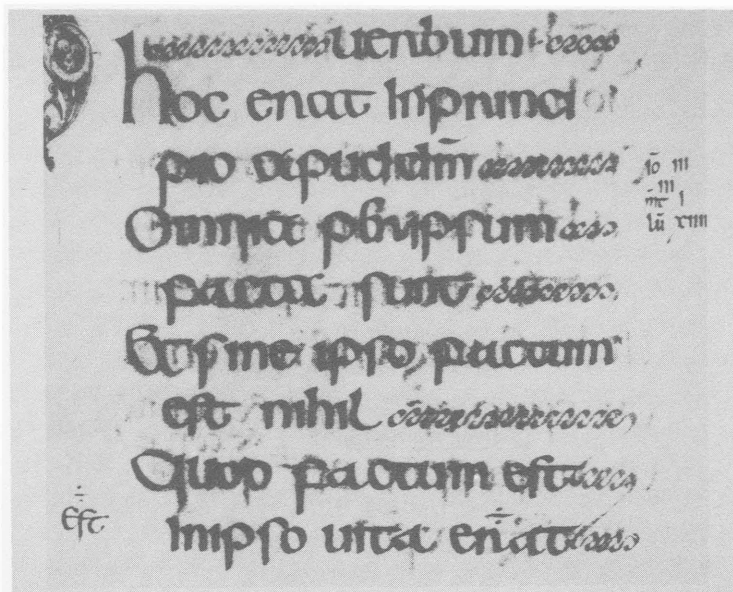 uerbum
hoc erat inprinci
pio apud dm̄
Omnia per ipsum
facta sunt
Et sine ipso factum
est nihil
Quod factum est
Inipso uita erat
iō iii
m̄t i
lū xiiii
÷
Est